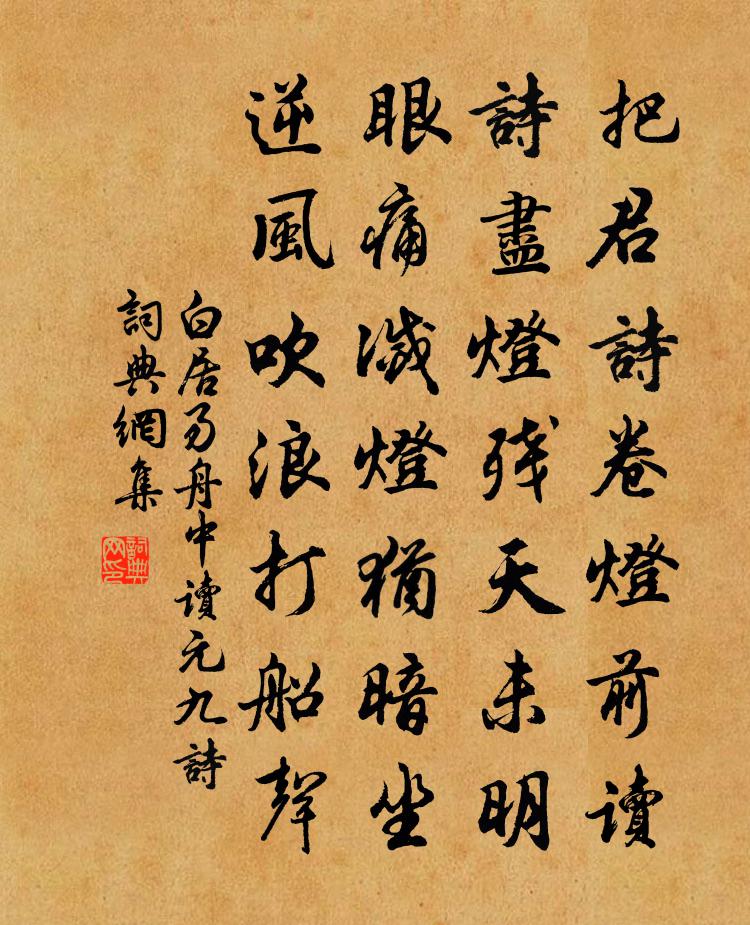 把君詩卷燈前讀
詩盡燈残天未明
眼痛滅燈猶暗坐
逆風吹浪打船聲
白居易舟中讀元九詩
詞典網集
詞典网印